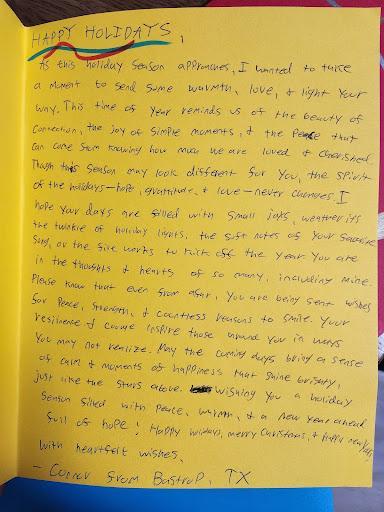 HAPPY HOLIDAYS,
As this holiday season approaches, I wanted to take
a moment to send some warmth, love, & light your
way. This time of year reminds us of the beauty of
connection, the joy of simple moments, & the peace that
can come from knowing how much we are loved & cherished.
Though this season may look different for you, the spirit
of the holidays—hope, gratitude, & love—never changes. I
hope your days are filled with small joys, weather its
the twinkle of holiday lights, the soft notes of your favorite
song, or the fire works to kick off the year you are
in the thoughts & hearts of so many, including mine.
Please know that even from afar, you are being sent wishes
for peace, strength, & countless reasons to smile. Your
& inspire those around you in ways
you may not realize. May the coming days bring a sense
of calm & moments of happiness that shine brightly,
just like the stars above. Wishing you a holiday
season filled with peace, warmth, & a new year ahead
full of hope! Happy holidays, merry Christmas, & happy new year,
with heartfelt wishes,
- Connor from Bastrop, TX